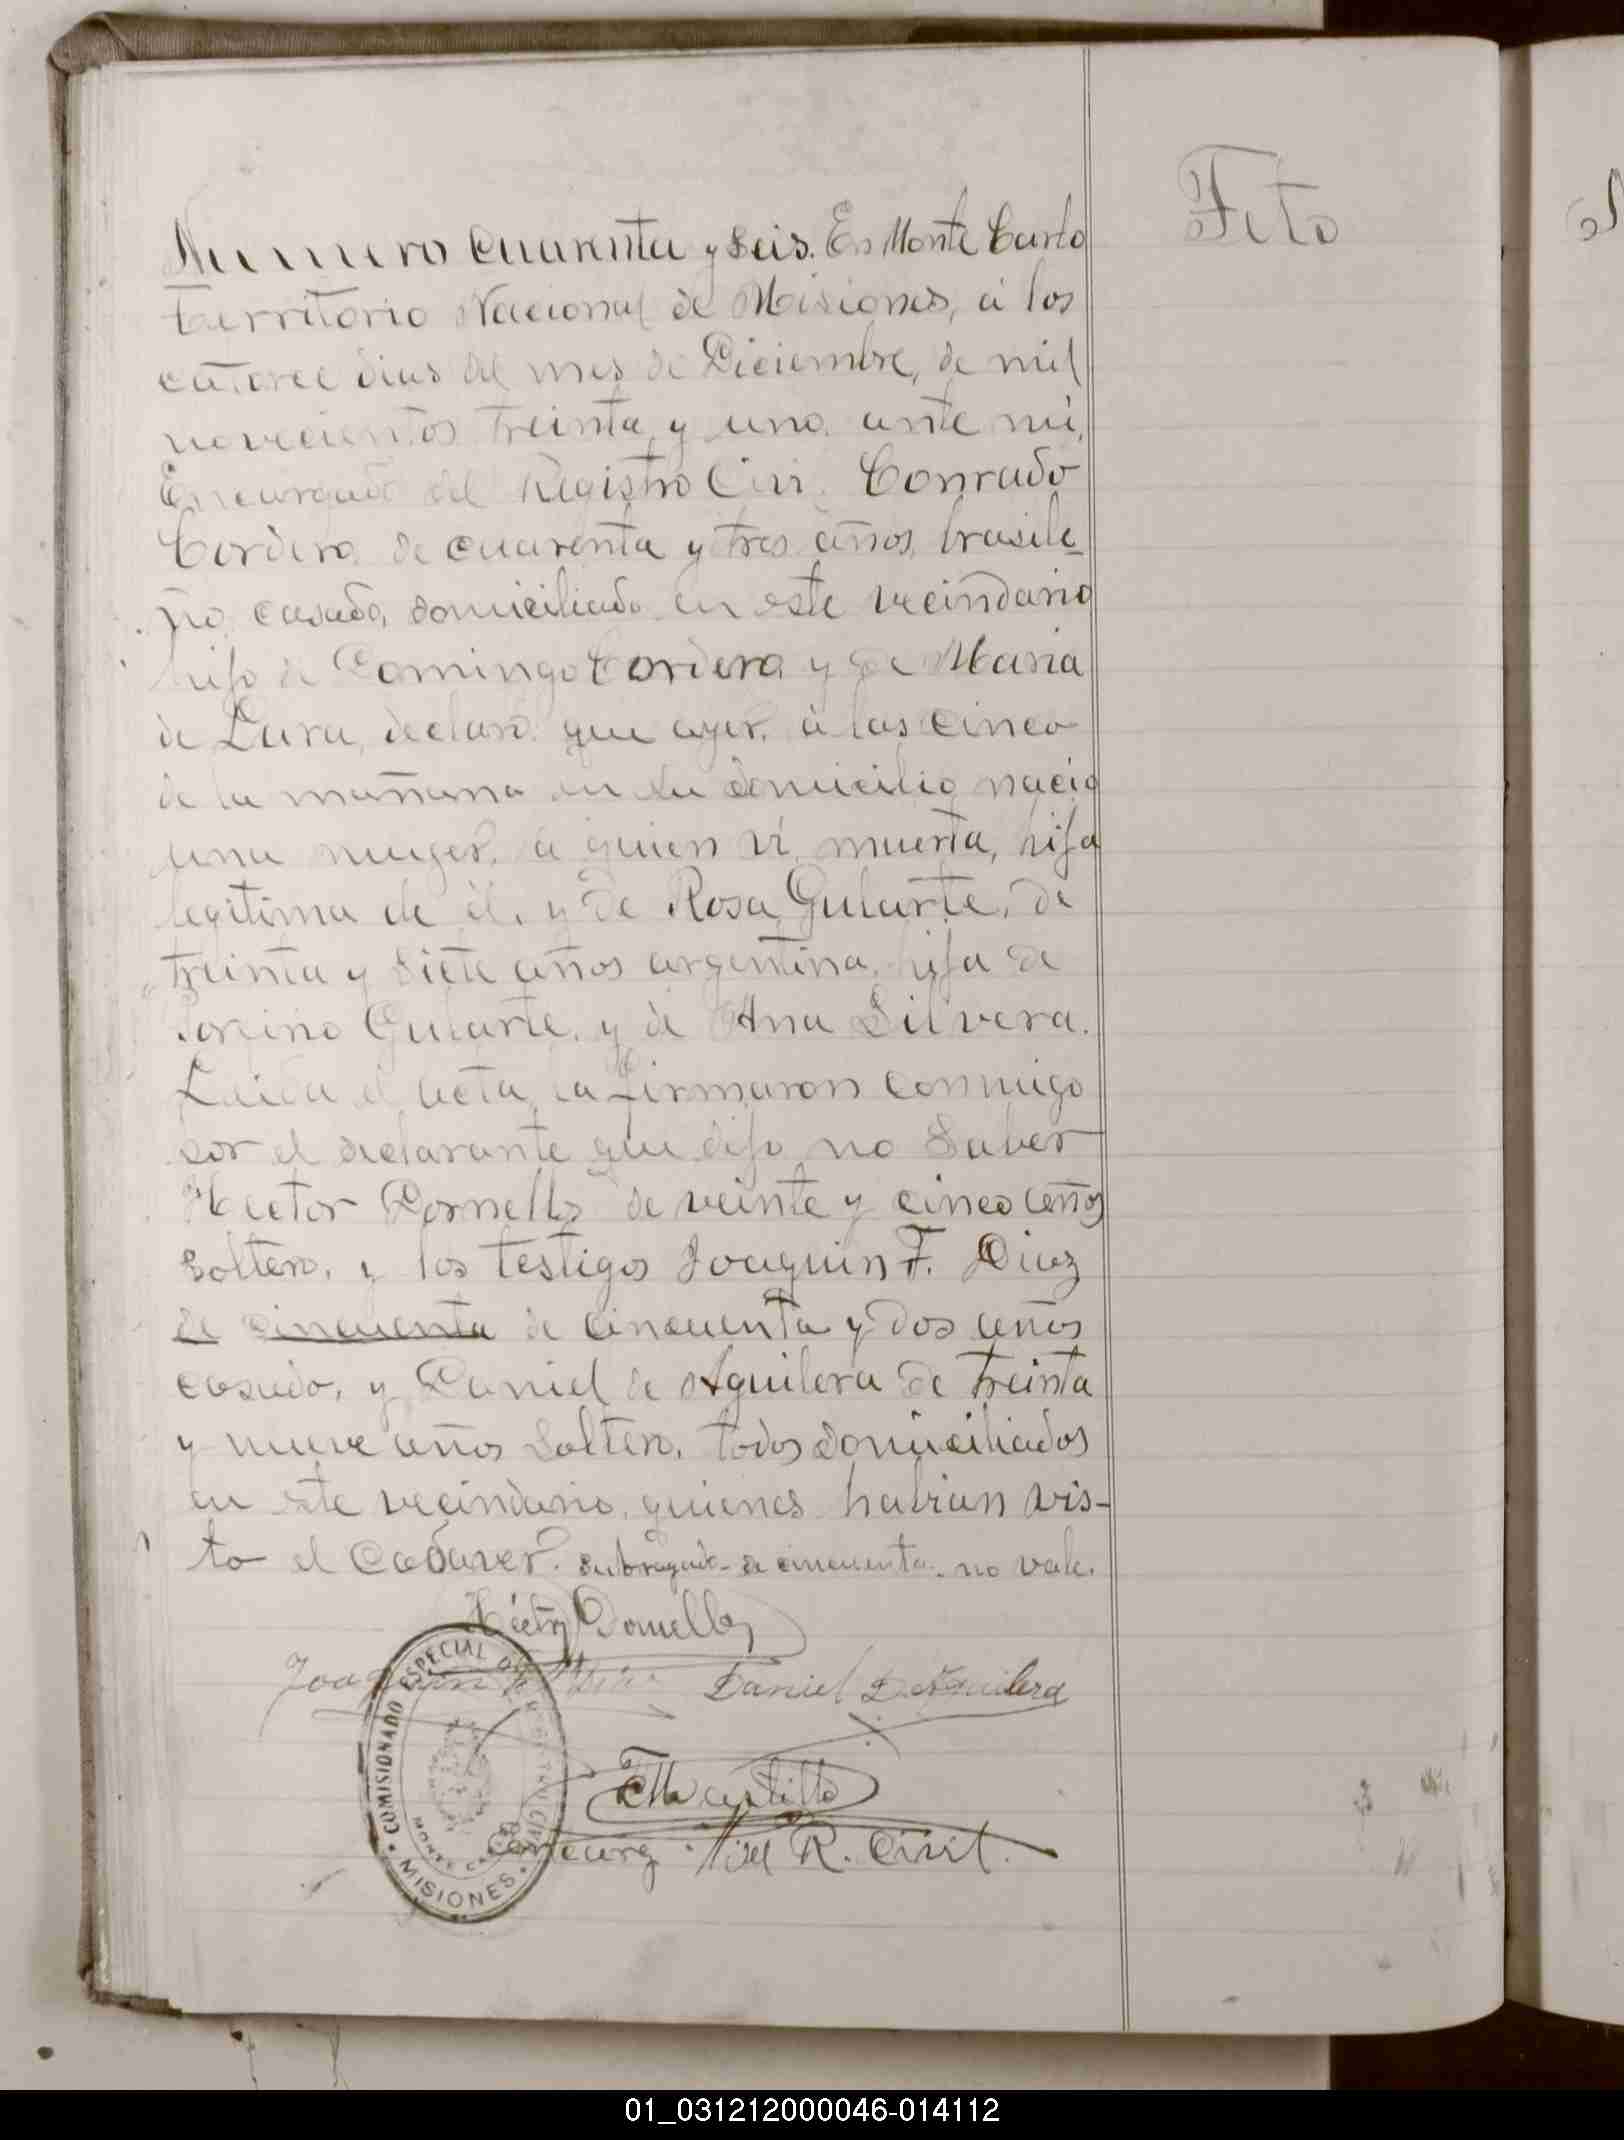 Feto
Numero cuarenta y seis. En Monte Carlo
territorio Nacional de Misiones, á los
catorce dias del mes de Diciembre, de mil
novecientos treinta y uno, ante mí,
Encargado del Registro Civi. Conrado
Cordero de cuarenta y tres años, brasile-
ño, casado, domiciliado en este vecindario
hijo de Domingo Cordero y de Maria
de Lara, declaró que ayer, á las cinco
de la mañana en su domicilio nació
una muger, a quien ví muerta, hija
legitima de él, y de Rosa Gularte, de
treinta y siete años argentina, hija de
Gularte, y de Ana Silvera.
Leida el acta, la firmaron conmigo
por el declarante que dijo no saber
Hector Dornells de veinte y cinco años
soltero, y los testigos Joaquin F. Diaz
de cincuenta de cincuenta y dos años
casado, y Daniel de Aguilera de treinta
y nueve años soltero, todos domiciliados
en este vecindario, quienes habian vis-
to el cadaver. subrayado - de cincuenta - no vale.
Héctor Dornells
Joaquin F. Diaz Daniel D. Aguilera
COMISIONADO ESPECIAL DEL REGISTRO CIVIL
MONTE CARLO
MISIONES
Encarg. del R. Civil.
01_031212000046-014112